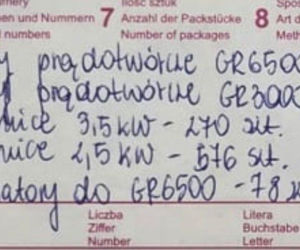 Ilość sztuk
en und Nummern 7 Anzahl der Packstücke 8 Art d
d numbers Number of packages Meth
prądotwórcze GR6500
prądotwórcze GR3000
nice 3,5 kW - 270 szt.
nice 2,5 kW - 576 szt.
atory do GR6500 - 78
Liczba Litera
Ziffer Buchstabe
Number Letter